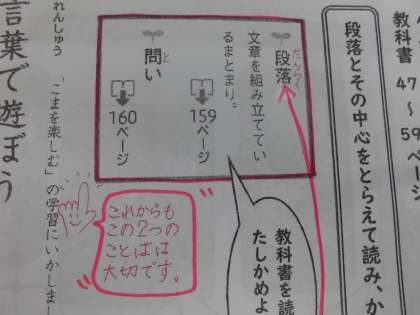 教科書 47〜59ページ
段落とその中心をとらえて読み、か
段落
だんらく
文章を組み立ててい
るまとまり。
159ページ
問い
と
160ページ
教科書を読
たしかめよ
これからも
この2つの
ことばは
大切です。
れんしゅう
言葉で遊ぼう
「こまを楽しむ」の学習にいかしまし